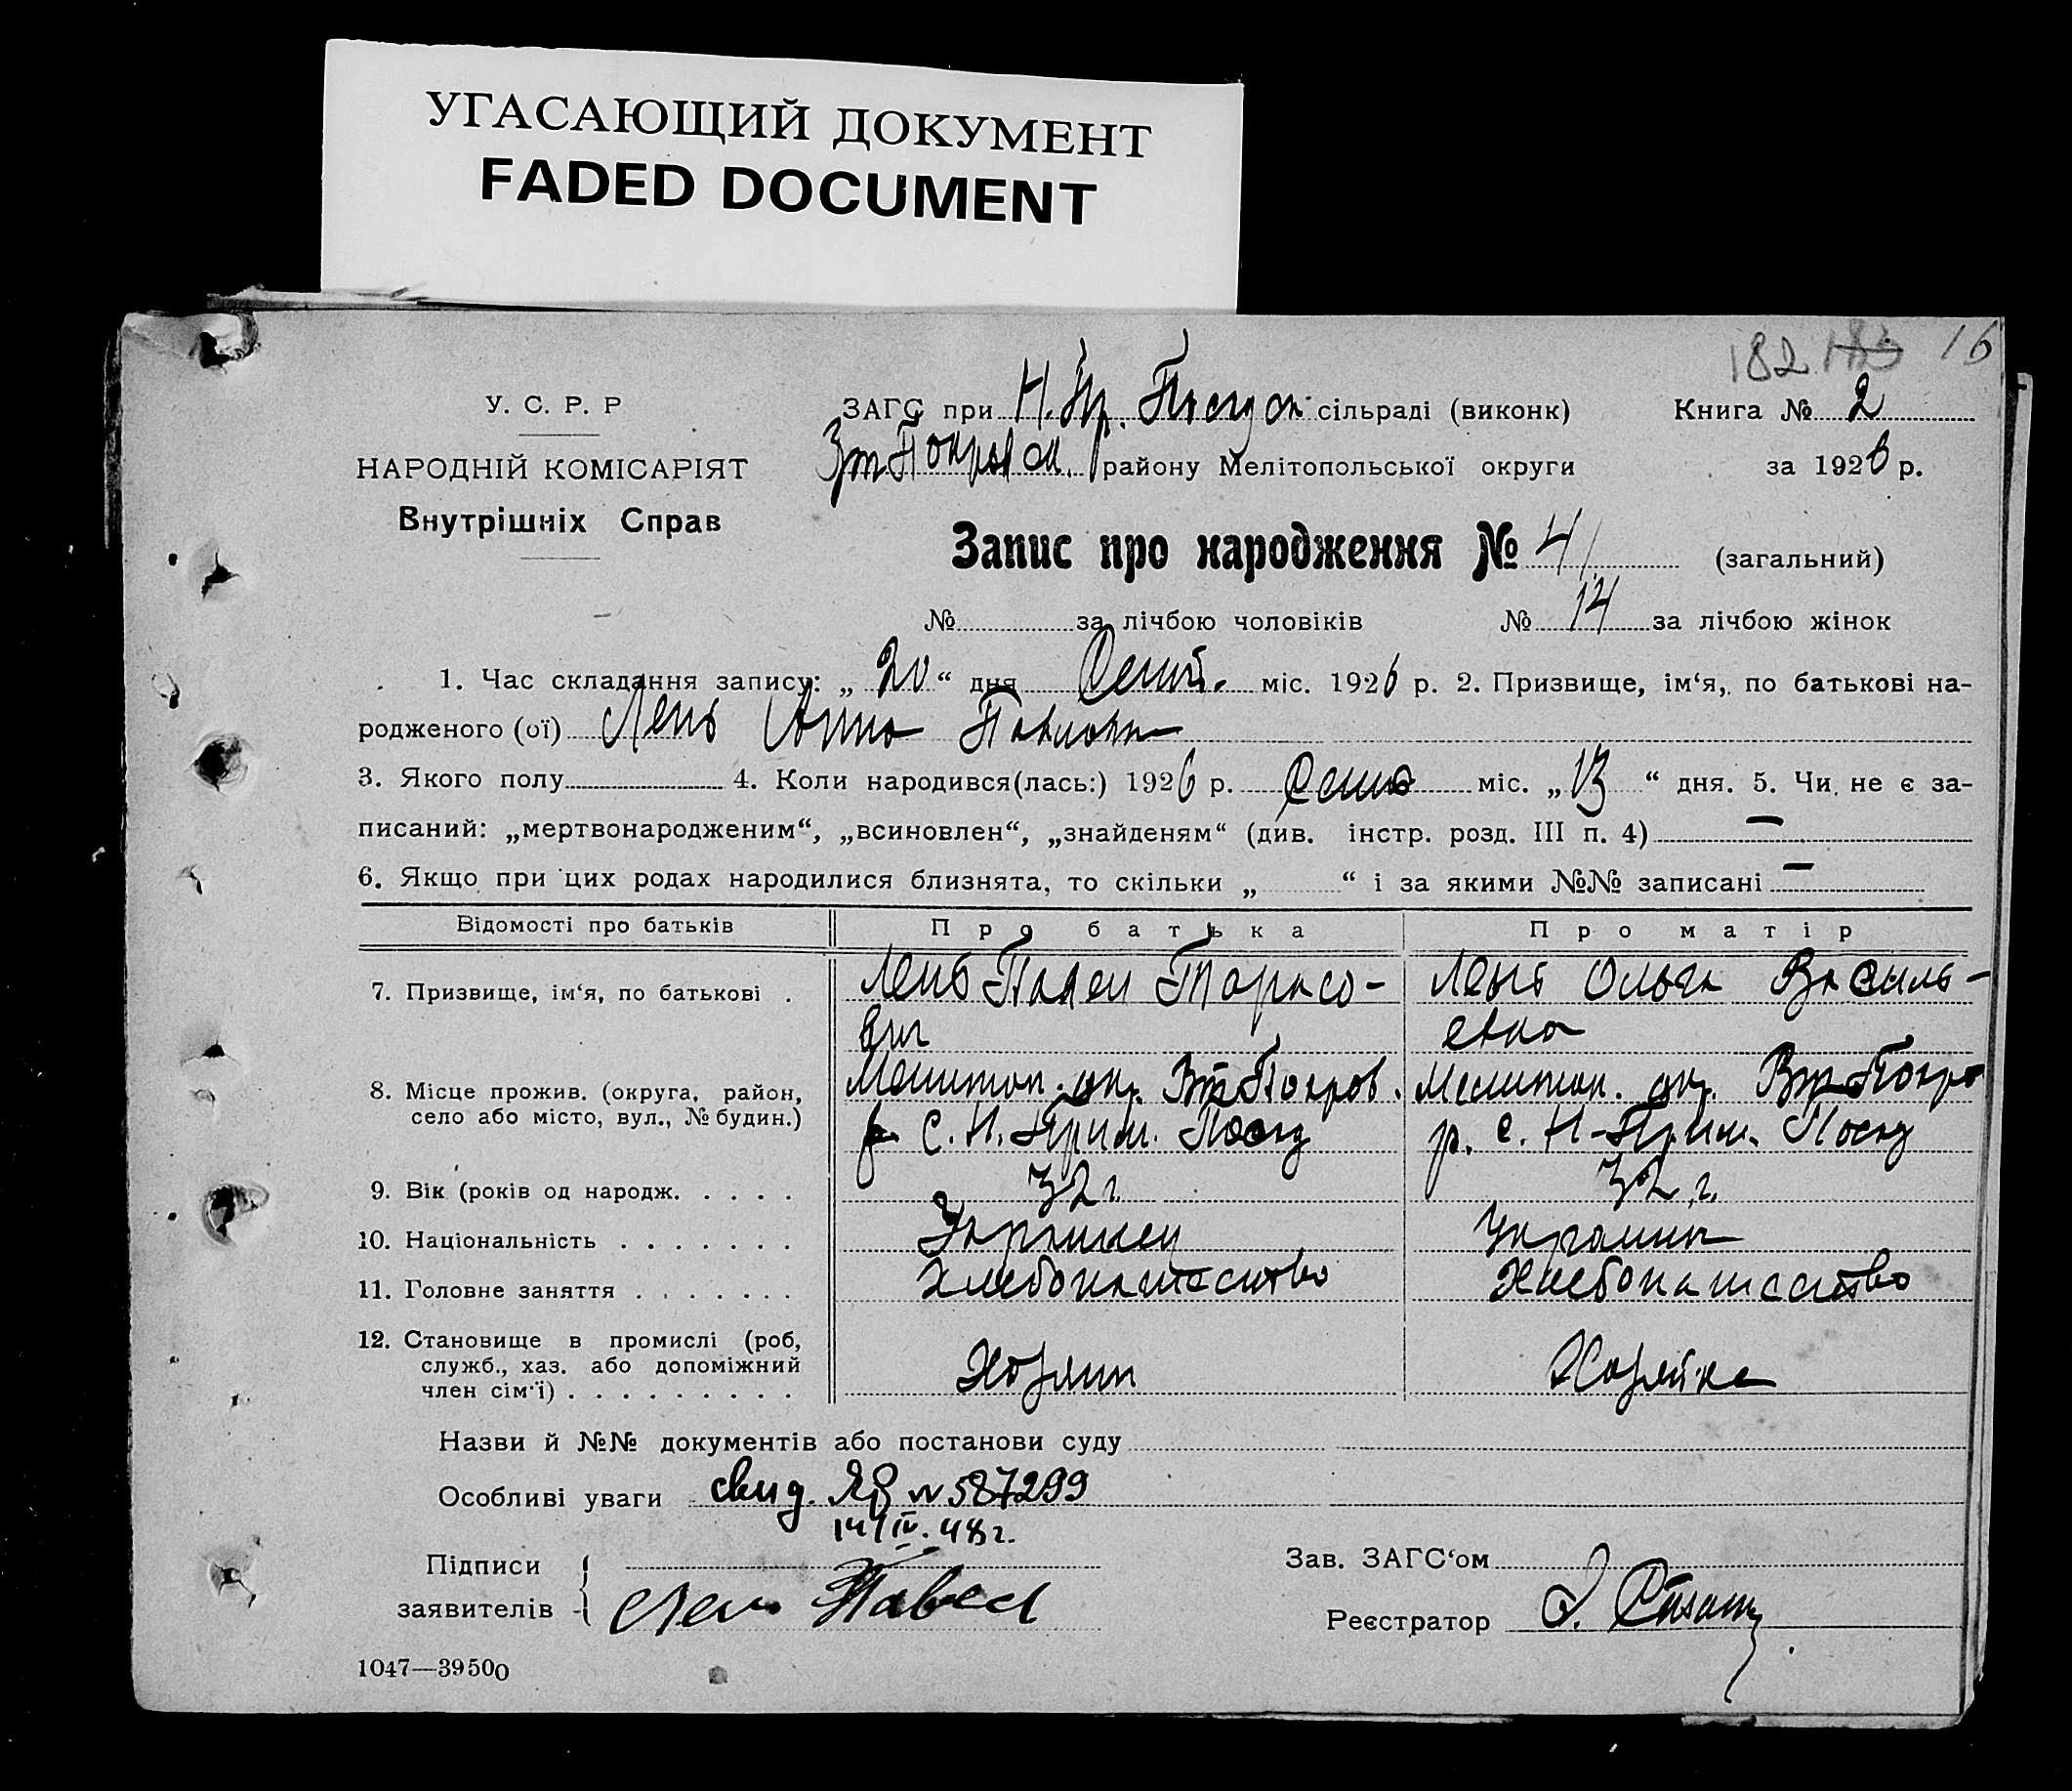 УГАСАЮЩИЙ ДОКУМЕНТ
FADED DOCUMENT
182 183 16
У. С. Р. Р
НАРОДНІЙ КОМІСАРІЯТ
Внутрішніх Справ
ЗАГС при Н. Пр. Посад ск. сільраді (виконк)
Книга № 2
Вт Покров ск. району Мелітопольської округи
за 1926 р.
Запис про народження № 41 (загальний)
№ за лічбою чоловіків № 14 за лічбою жінок
1. Час складання запису: „ 20 “ дня Сент. міс. 1926 р. 2. Призвище, ім‘я, по батькові на-
родженого (ої) Лень Анна Павловна
3. Якого полу 4. Коли народився(лась:) 1926 р. Сент міс. „ 13 “ дня. 5. Чи не є за-
писаний: „мертвонародженим“, „всиновлен“, „знайденям“ (див. інстр. розд. III п. 4) —
6. Якщо при цих родах народилися близнята, то скільки „ “ і за якими №№ записані —
Відомості про батьків Про батька Про матір
7. Призвище, ім‘я, по батькові . Лень Павел Тарасо- Лень Ольга Василь-
вич евна
8. Місце прожив. (округа, район, Мелитоп. окр. Вт Покров. Мелитоп. окр. Вт-Покро
село або місто, вул., № будин.) р. С. Н. Прим. Посад р. с. Н-Прим. Посад
9. Вік (років од народж. . . . . 32 г. 32 г.
10. Національність . . . . . . . Украинец Украинка
11. Головне заняття . . . . . . . Хлебопашество Хлебопашество
12. Становище в промислі (роб,
служб., хаз. або допоміжний Хозяин Хозяйка
член сім‘ї) . . . . . . . . .
Назви й №№ документів або постанови суду
Особливі уваги свид. № 587299
14/IV. 48 г.
Підписи
заявителів Лень Павел
Зав. ЗАГС‘ом
Реєстратор
1047—39500